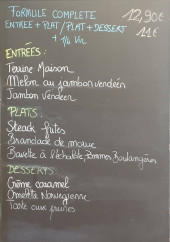 FORMULE COMPLETE 12,90€
ENTREE + PLAT / PLAT + DESSERT 11€
+ 1/4 Vin
ENTRÉES :
Terrine Maison
Melon au jambon vendéen
Jambon Vendéen
PLATS :
Steack frites
Brandade de morue
Bavette à l'échalote, Pommes Boulangères
DESSERTS
Crème caramel
Omelette Norvegienne
Tarte aux prunes